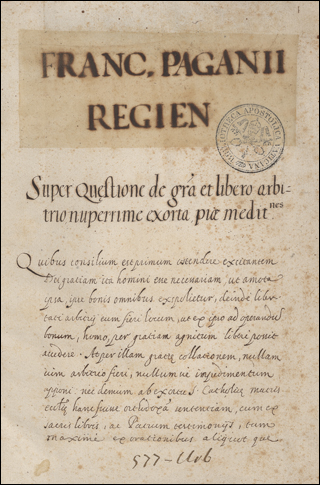 FRANC. PAGANII
REGIEN
BIBLIOTHECA APOSTOLICA VATICANA
Super Questione de gr̃a et libero arbi-
trio nuperrime exorta piæ medit.nes
Quibus consilium est primum ostendere excitantem
Dei gratiam ita homini esse necessariam, ut amota
ipsa, quis bonis omnibus expolietur, deinde liber-
tati arbitrij eum fieri locum, ut ex ipso ad operandum
bonum, homo, per gratiam
audeo. At per illam gratiæ collationem, nullam
uim arbitrio fieri, nullumue impedimentum
apponi
hanc fuisse ortodoxā sententiam, cum ex
sacris libris, ac Patrum testimonijs, tum
maxime ex orationibus aliquot, que
577 - Urb